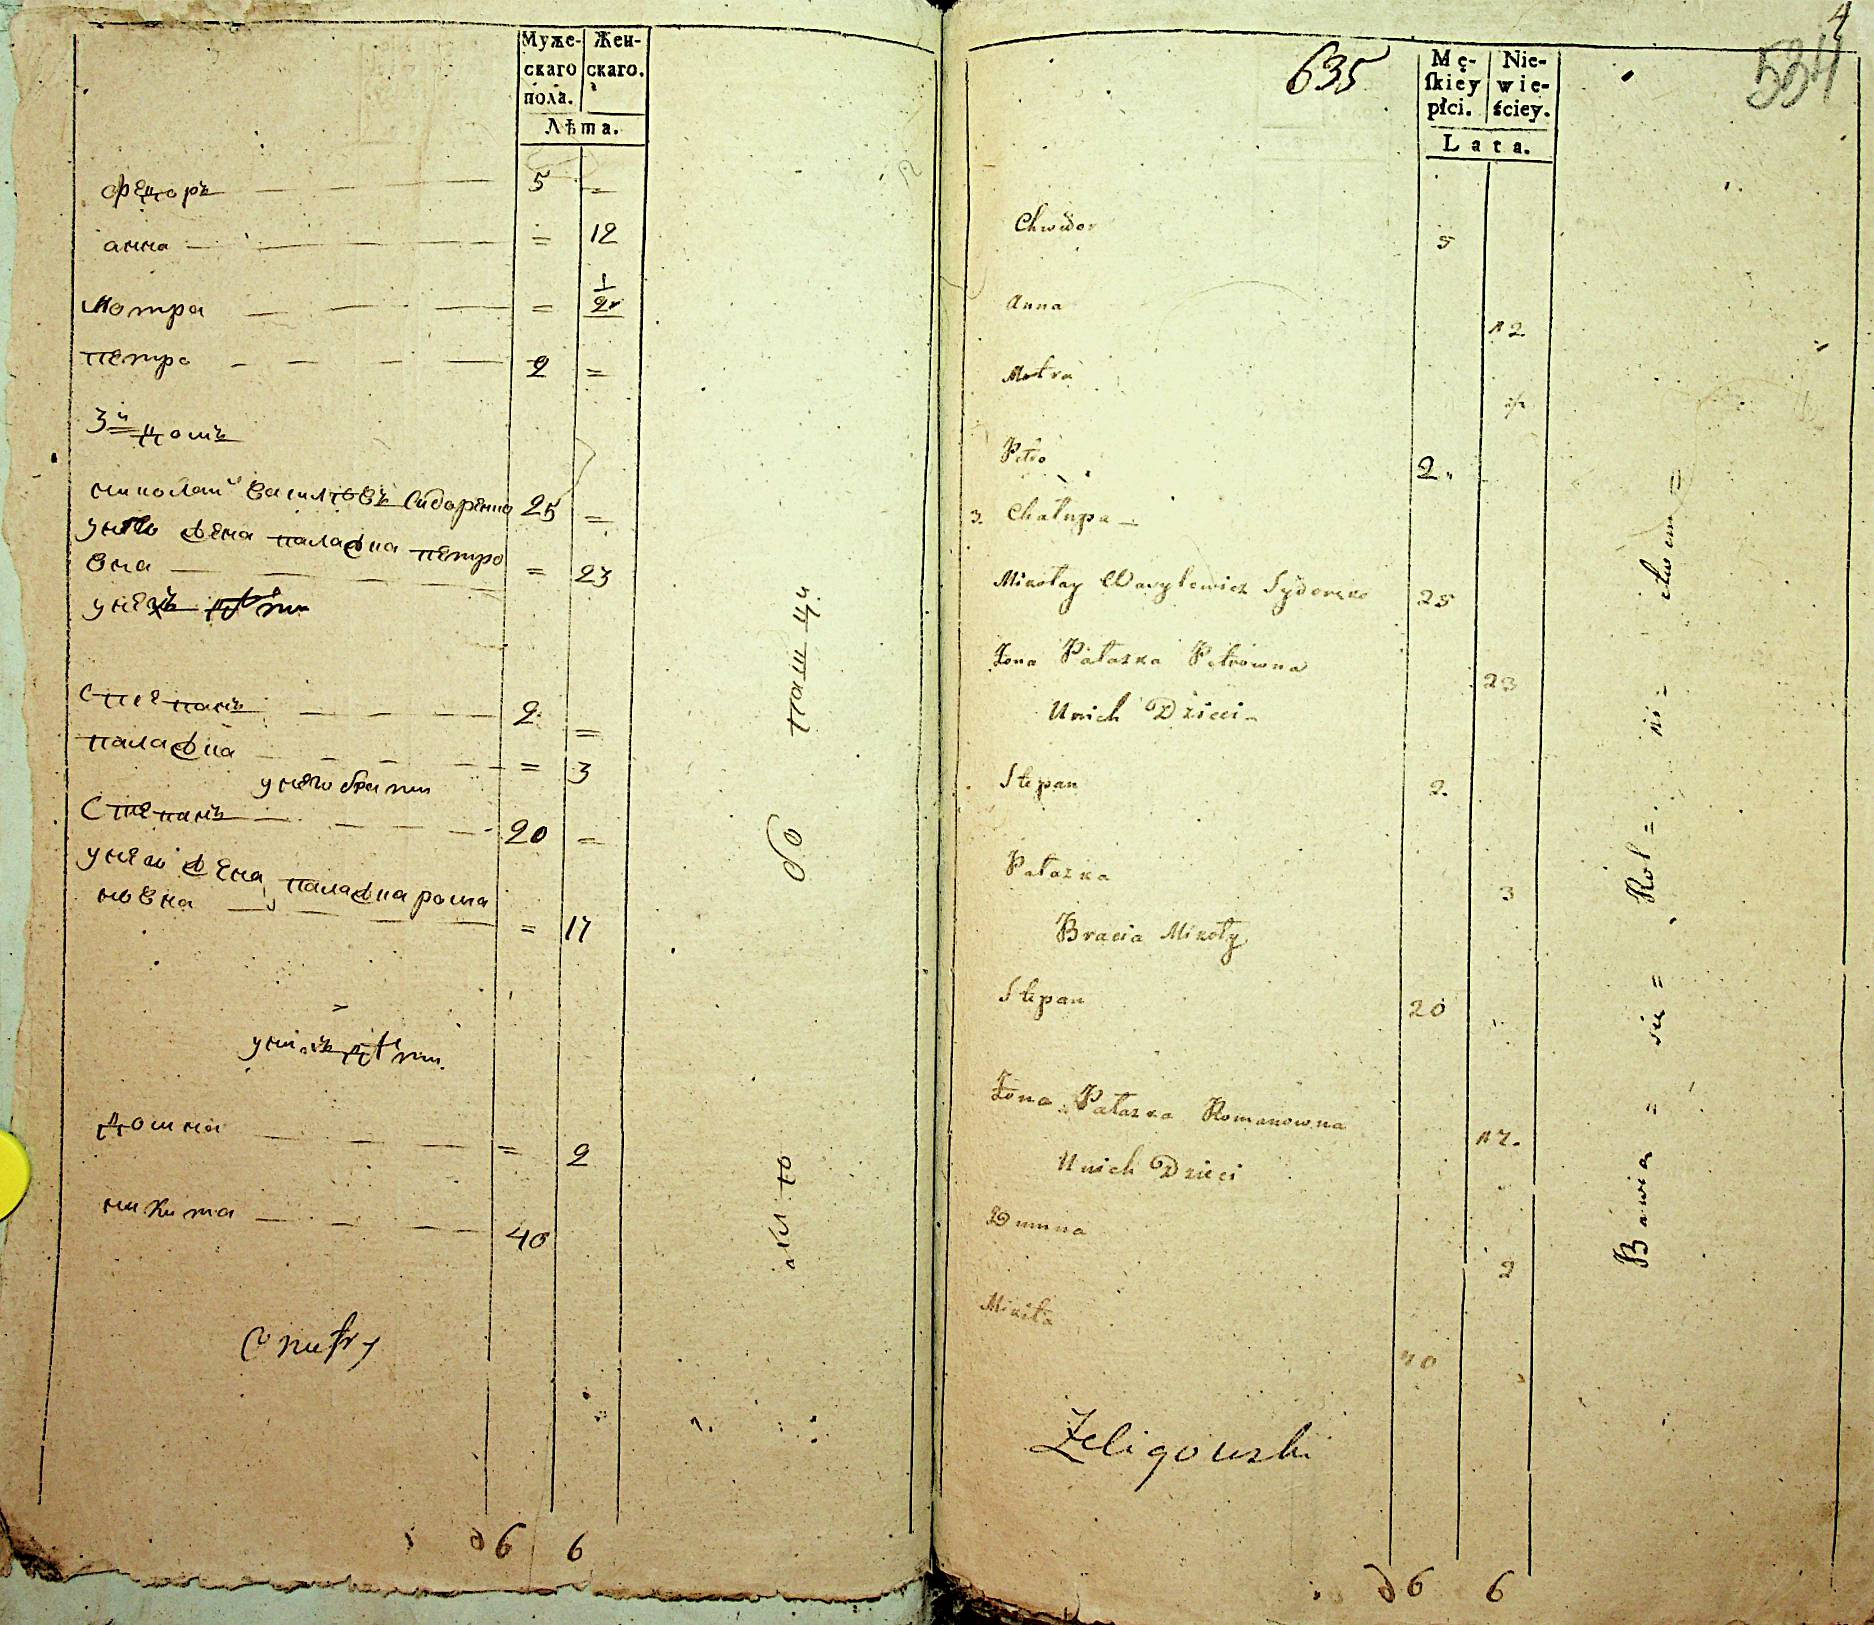 Муже-
скаго
пола.
Жен-
скаго.
Лѣта.
Федоръ 5 =
анна = 12
Мотра = 1/2
петро 2 =
3й домъ
николаи васильевъ Сидоренко 25 =
унего жена палажка петро
вна = 23
унехъ дѣти
Степанъ 2 =
палажка = 3
унего брати
Степанъ 20 =
унего жена палажка рома
новна = 17
унихъ дѣти
домна = 2
никита 40
д 6 6
пашци
бо
635
4
534
Mę-
ſkiey
płci.
Nie-
wie-
ściey.
Lata.
Chwedor 5
Anna 12
Motra 1/2
Petro 2.
3. Chałupa
Mikołay Wasylewicz Sydoręko 25
Zona Pałazka Petrowna 23
Unich Dzieci
Stepan 2.
Pałazka 3
Bracia Mikoły
Stepan 20
Zona Pałazka Romanowna 17.
Unich Dzieci
Dumna 2
Mikita 40
Żeligowski
д 6 6
Bawią = się = Rol = ni = ctwem =